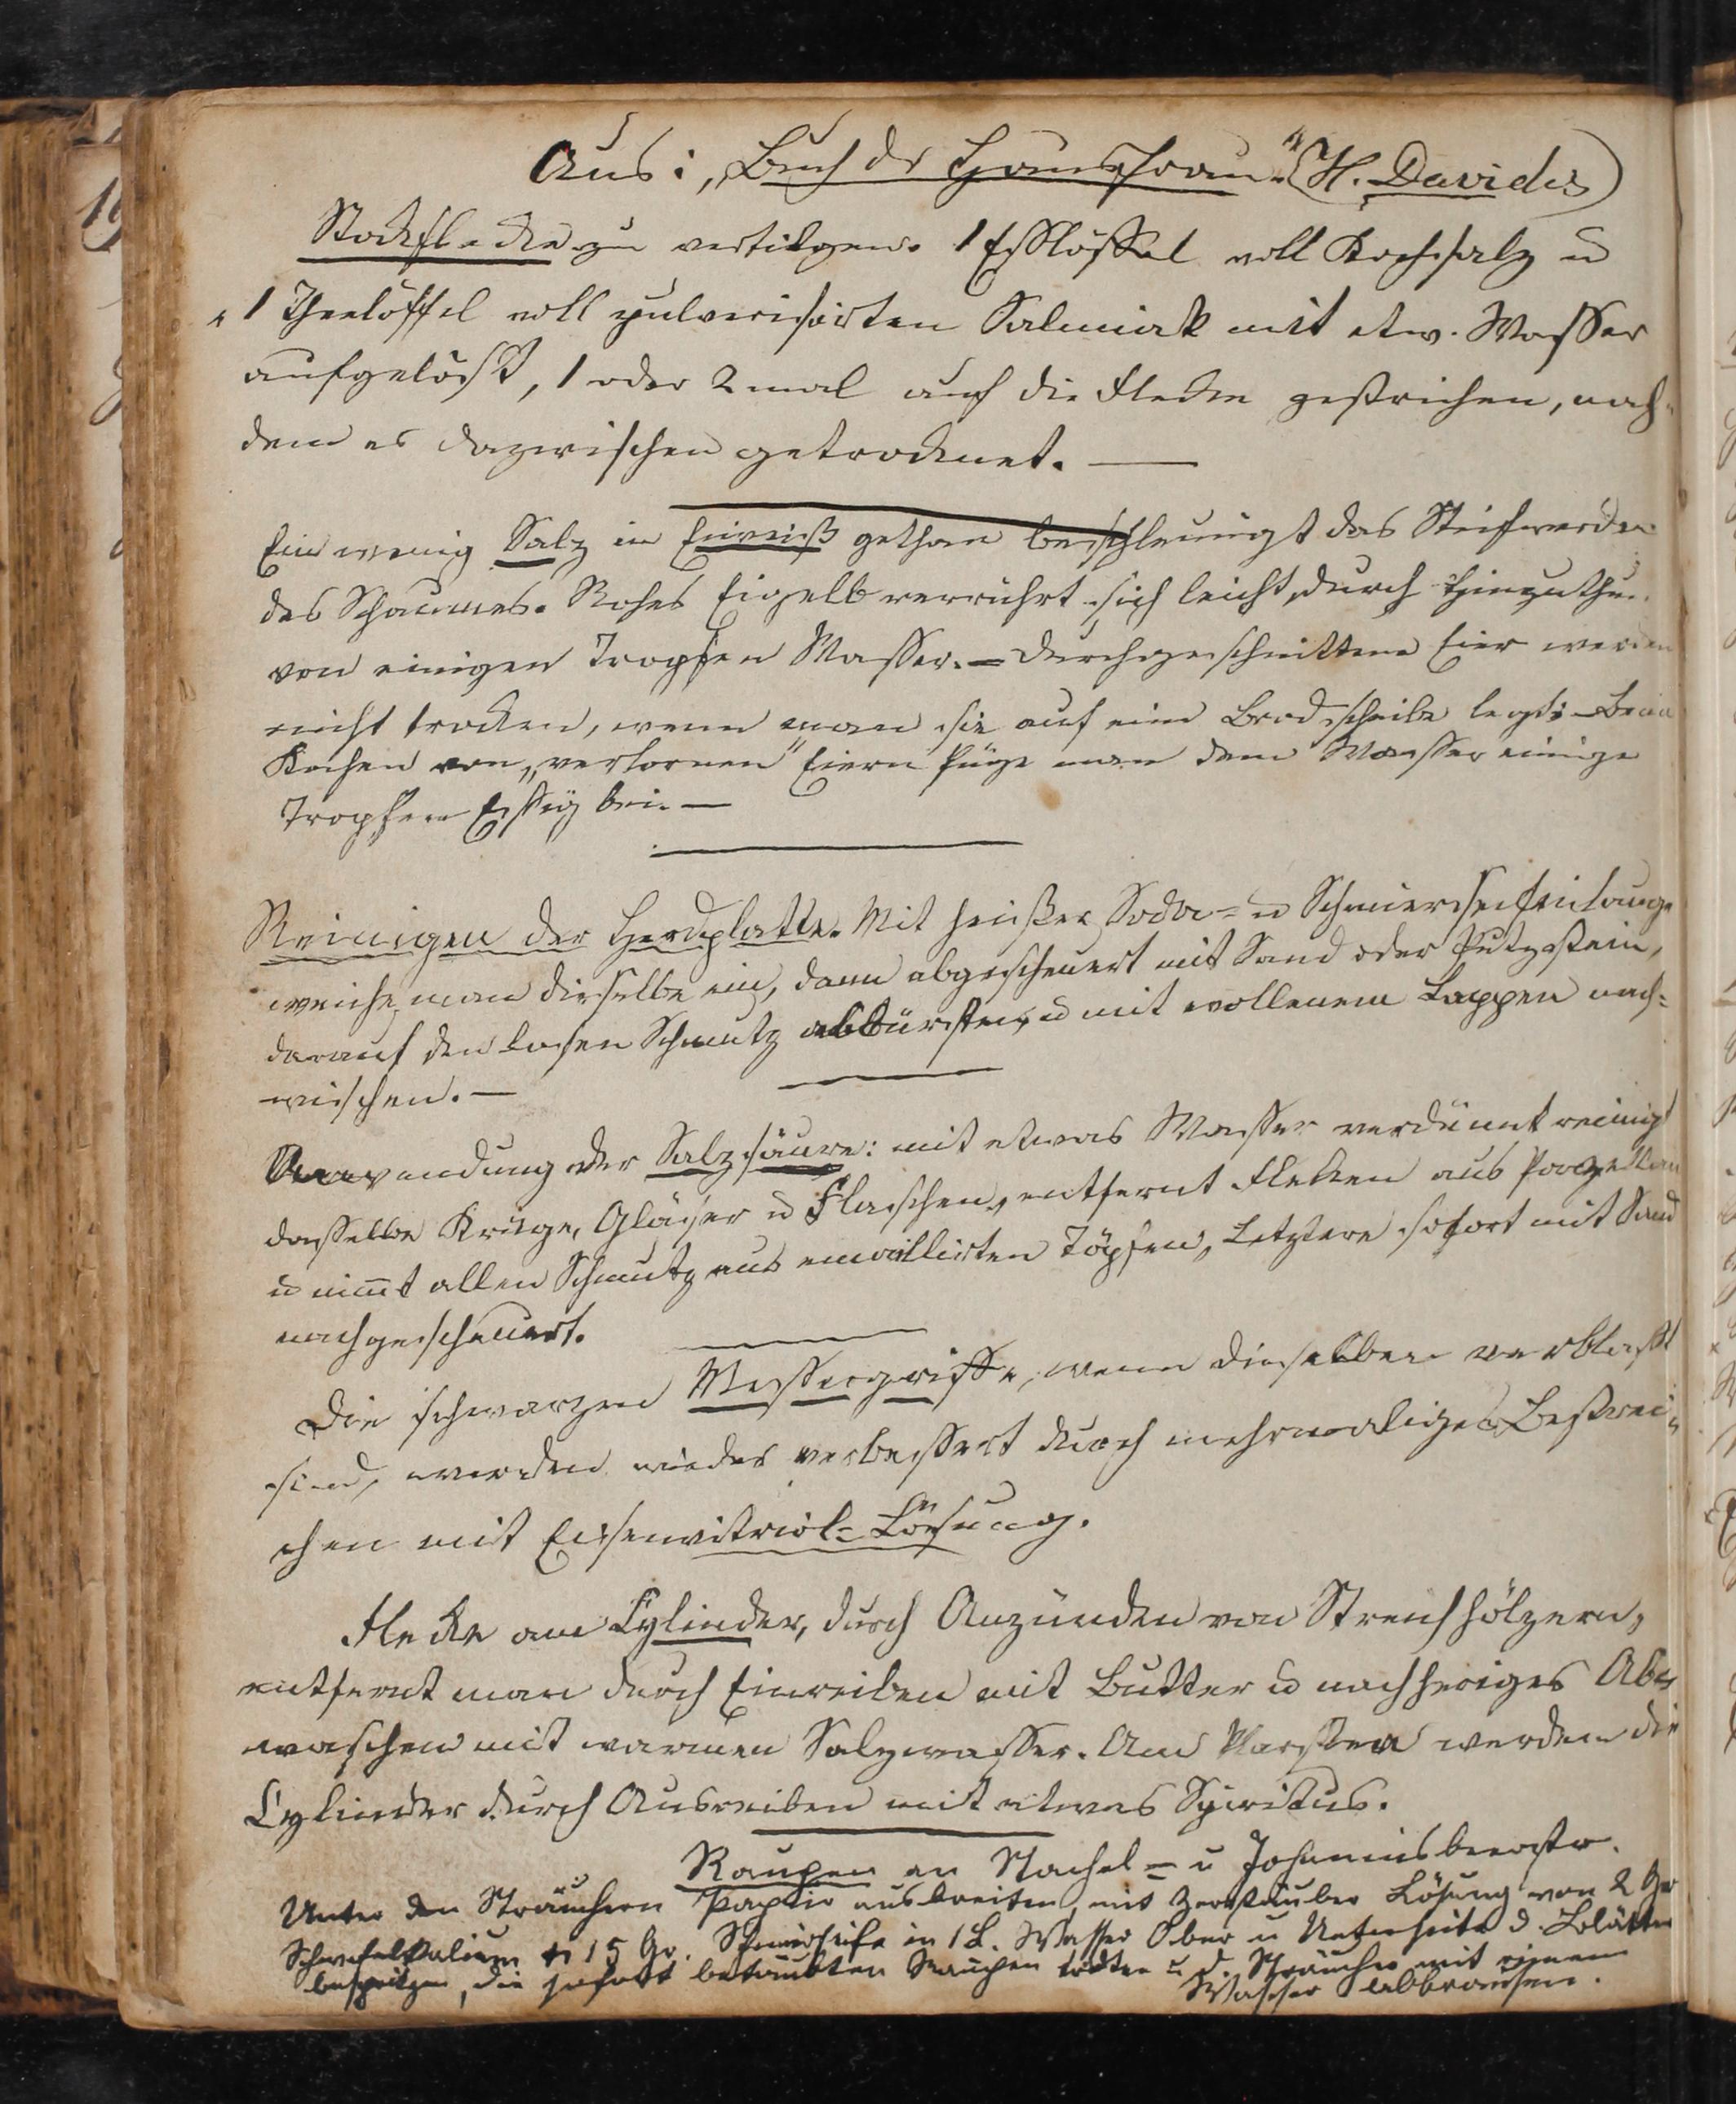 Aus: „Buch der Hausfrau“ (H. Davidis)
Stockflecke zu vertilgen. 1 Esslöffel voll Kochsalz u
1 Theelöffel voll pulverisirten Salmiak mit etw. Wasser
aufgelöst, 1 oder 2 mal auf die Flecken gestrichen, nach-
dem es dazwischen getrocknet. —
Ein wenig Salz in Eiweiß gethan beschleunigt das Steifwerden
des Schaumes. Rohes Eigelb verrührt sich leicht, durch Hinzuthun
von einigen Tropfen Wasser. — Durchgeschnittene Eier werden
nicht trocken, wenn man sie auf eine Brodscheibe legt. — Beim
Kochen von „verlornen“ Eiern füge man dem Wasser einige
Tropfen Essig bei. —
Reinigen der Herdplatte. Mit heißer Soda- u Schmierseifenlauge
weiche man dieselbe ein, dann abgescheuert mit Sand oder Putzstein,
darauf den losen Schmutz abbürsten, u mit wollenem Lappen nach-
wischen. —
Anwendung der Salzsäure: mit etwas Wasser verdünnt reinigt
dasselbe Krüge, Gläser u Flaschen, entfernt Flecken aus Porzellan
u nim̅t allen Schmutz aus emaillirten Töpfen, Letztere sofort mit Sand
nachgescheuert.
Die schwarzen Messergriffe, wenn dieselben verblaßt
sind, werden wieder verbessert durch mehrmaliges Bestrei-
chen mit Eisenvitriol-Lösung.
Flecke am Cylinder, durch Anzünden von Streichhölzern,
entfernt man durch Einreiben mit Butter u nachheriges Ab-
waschen mit warmen Salzwasser. Am klarsten werden die
Cylinder durch Ausreiben mit etwas Spiritus.
Raupen an Stachel- u Johannisbeerstr.
Unter den Sträuchern Papier ausbreiten, mit Zerstäuber Lösung von 2 Gr
Schwefelkalium u 15 Gr. Schmierseife in 1 L. Wasser Ober u Unterseite d. Blätter
bespritzen, die sofort betäubten Raupen tödten u d. Sträucher mit reinem
Wasser abbrausen.